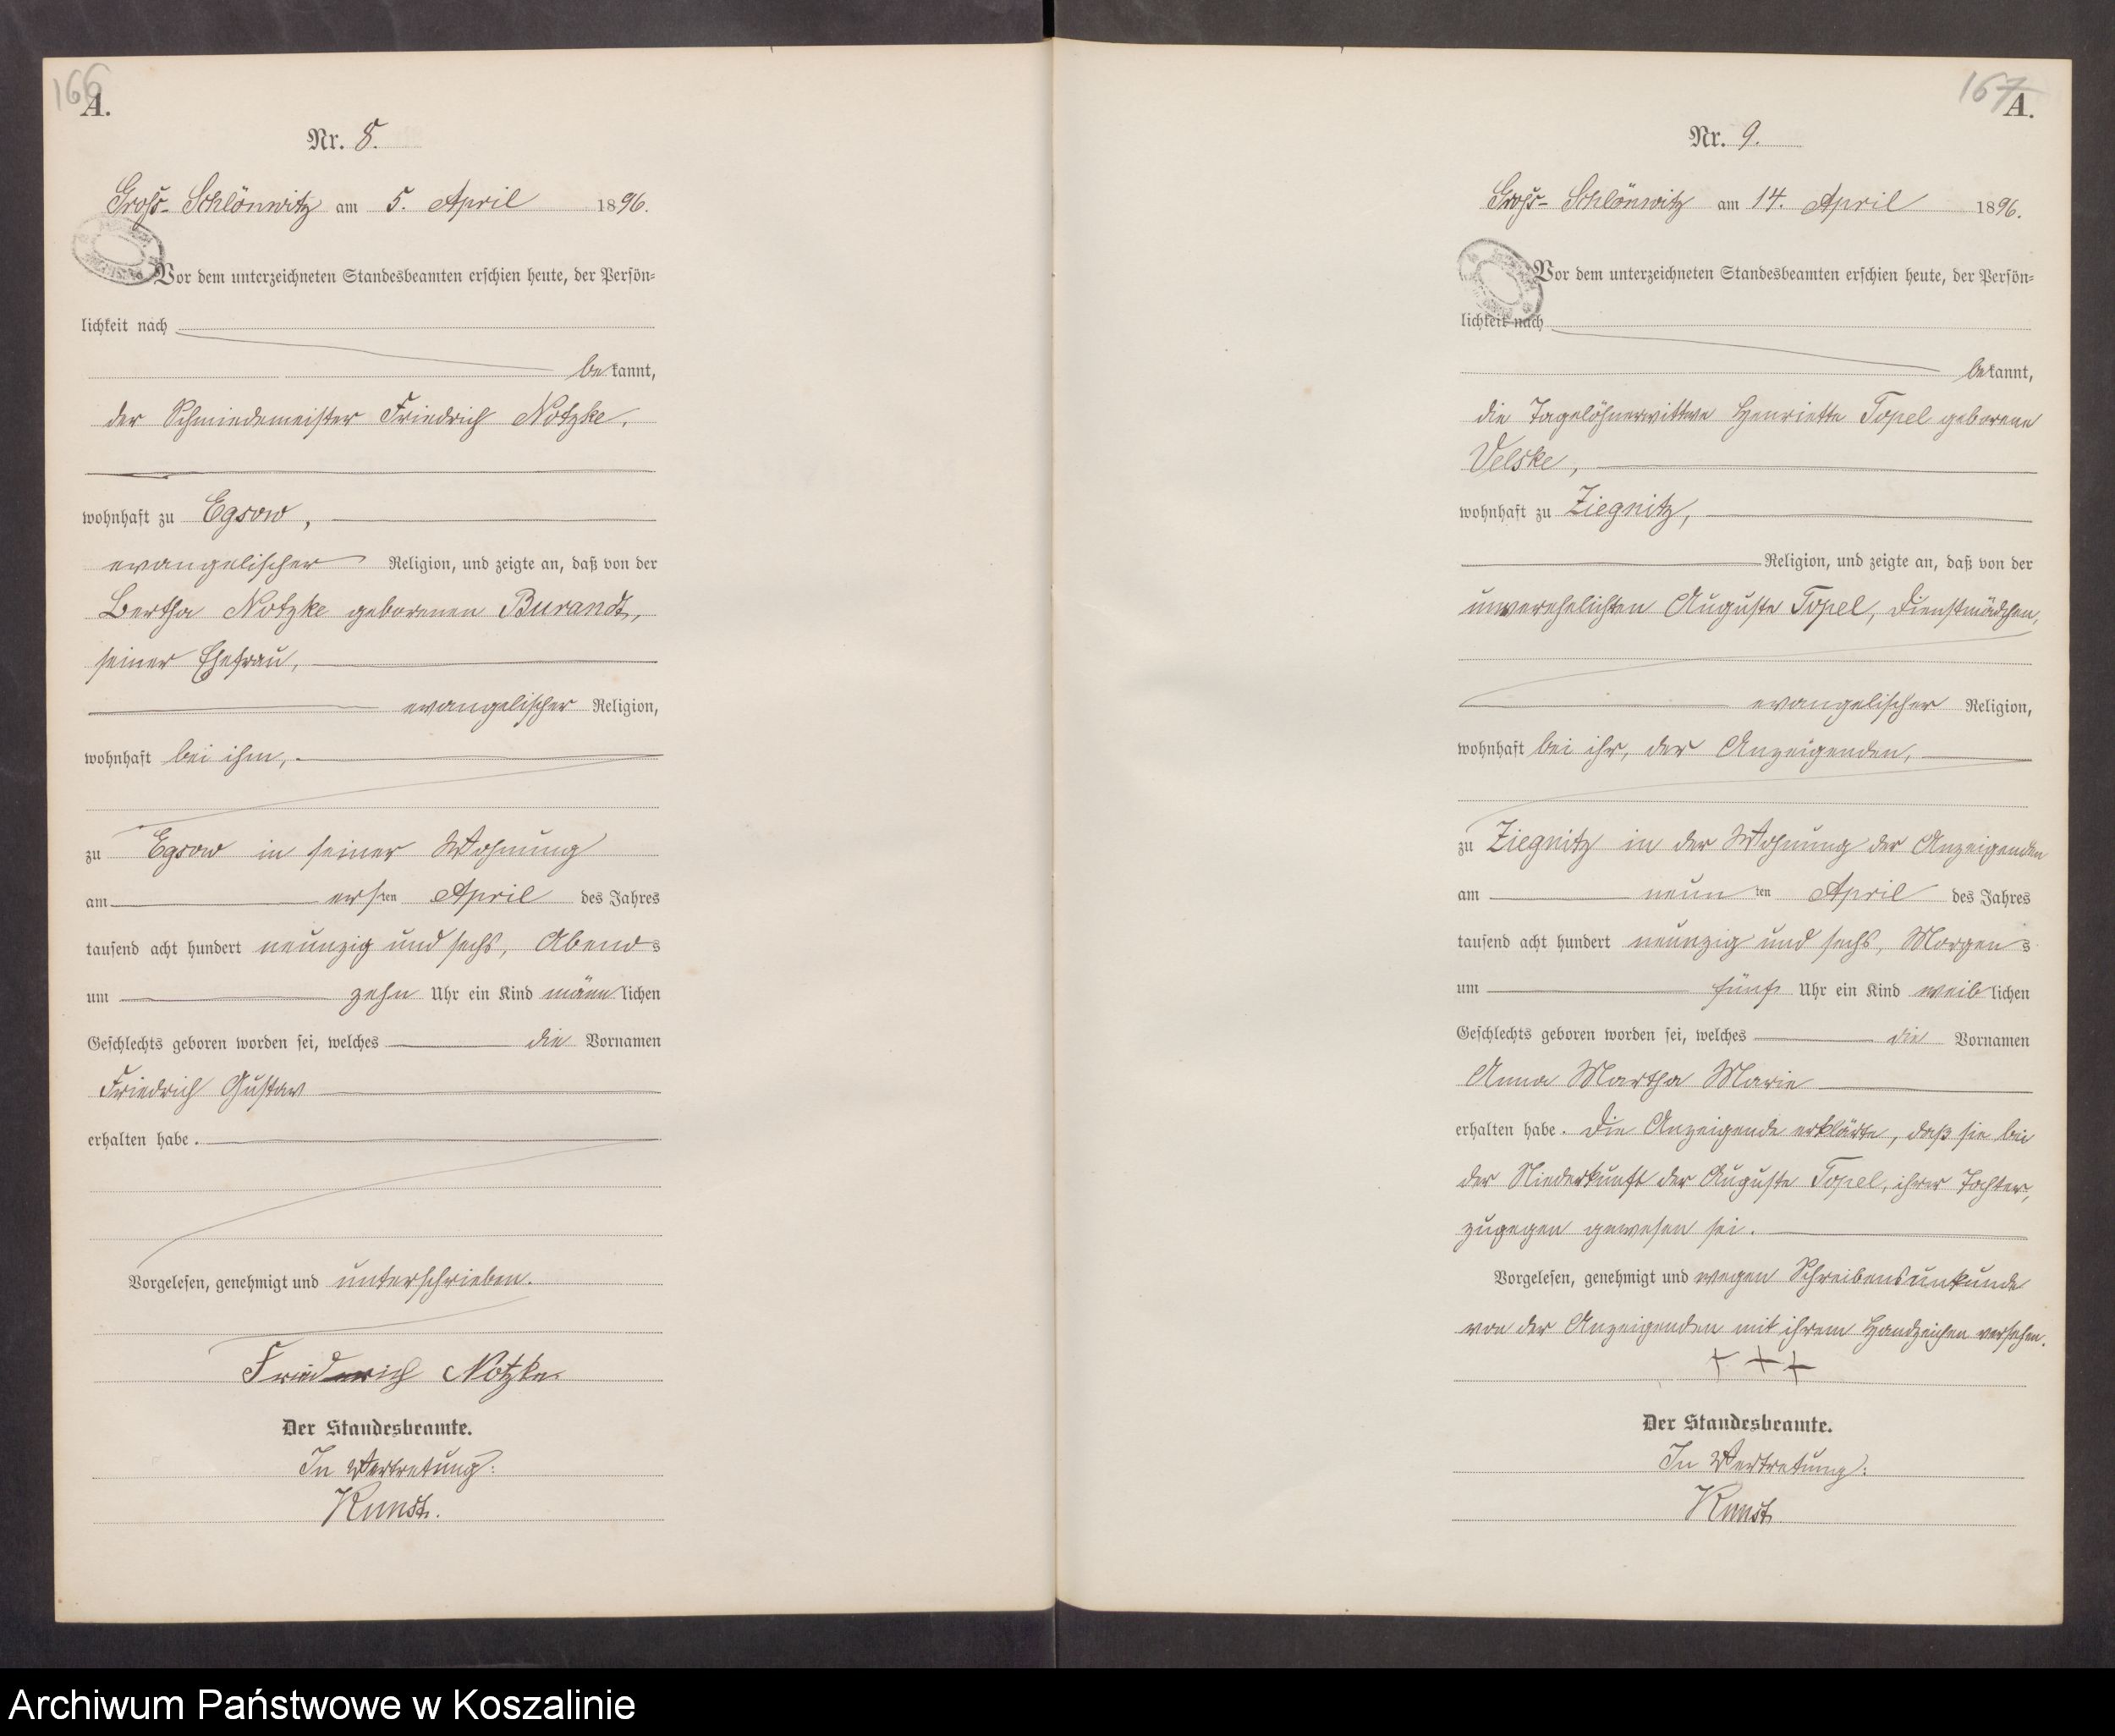 166
A.
Nr. 8.
Groß-Schlönwitz am 5. April 1896.
Vor dem unterzeichneten Standesbeamten erschien heute, der Persön=
lichkeit nach
bekannt,
der Schmiedemeister Friedrich Notzke,
wohnhaft zu Egsow,
evangelischer Religion, und zeigte an, daß von der
Bertha Notzke geborenen Burandt,
seiner Ehefrau,
evangelischer Religion,
wohnhaft bei ihm,
zu Egsow in seiner Wohnung
am ersten April des Jahres
tausend acht hundert neunzig und sechs, Abends
um zehn Uhr ein Kind männlichen
Geschlechts geboren worden sei, welches die Vornamen
Friedrich Gustav
erhalten habe.
Vorgelesen, genehmigt und unterschrieben.
Friedrich Notzke
Der Standesbeamte.
In Vertretung:
Kunst.
167
A.
Nr. 9.
Groß-Schlönwitz am 14. April 1896.
Vor dem unterzeichneten Standesbeamten erschien heute, der Persön=
lichkeit nach
bekannt,
die Tagelöhnerwittwe Henriette Topel geborene
Velske,
wohnhaft zu Ziegnitz,
Religion, und zeigte an, daß von der
unverehelichten Auguste Topel, Dienstmädchen,
evangelischer Religion,
wohnhaft bei ihr, der Anzeigenden,
zu Ziegnitz in der Wohnung der Anzeigenden
am neunten April des Jahres
tausend acht hundert neunzig und sechs, Morgens
um fünf Uhr ein Kind weiblichen
Geschlechts geboren worden sei, welches die Vornamen
Anna Martha Marie
erhalten habe. Die Anzeigende erklärte, daß sie bei
der Niederkunft der Auguste Topel, ihrer Tochter,
zugegen gewesen sei.
Vorgelesen, genehmigt und wegen Schreibensunkunde
von der Anzeigenden mit ihrem Handzeichen versehen.
+++
Der Standesbeamte.
In Vertretung:
Kunst
Archiwum Państwowe w Koszalinie